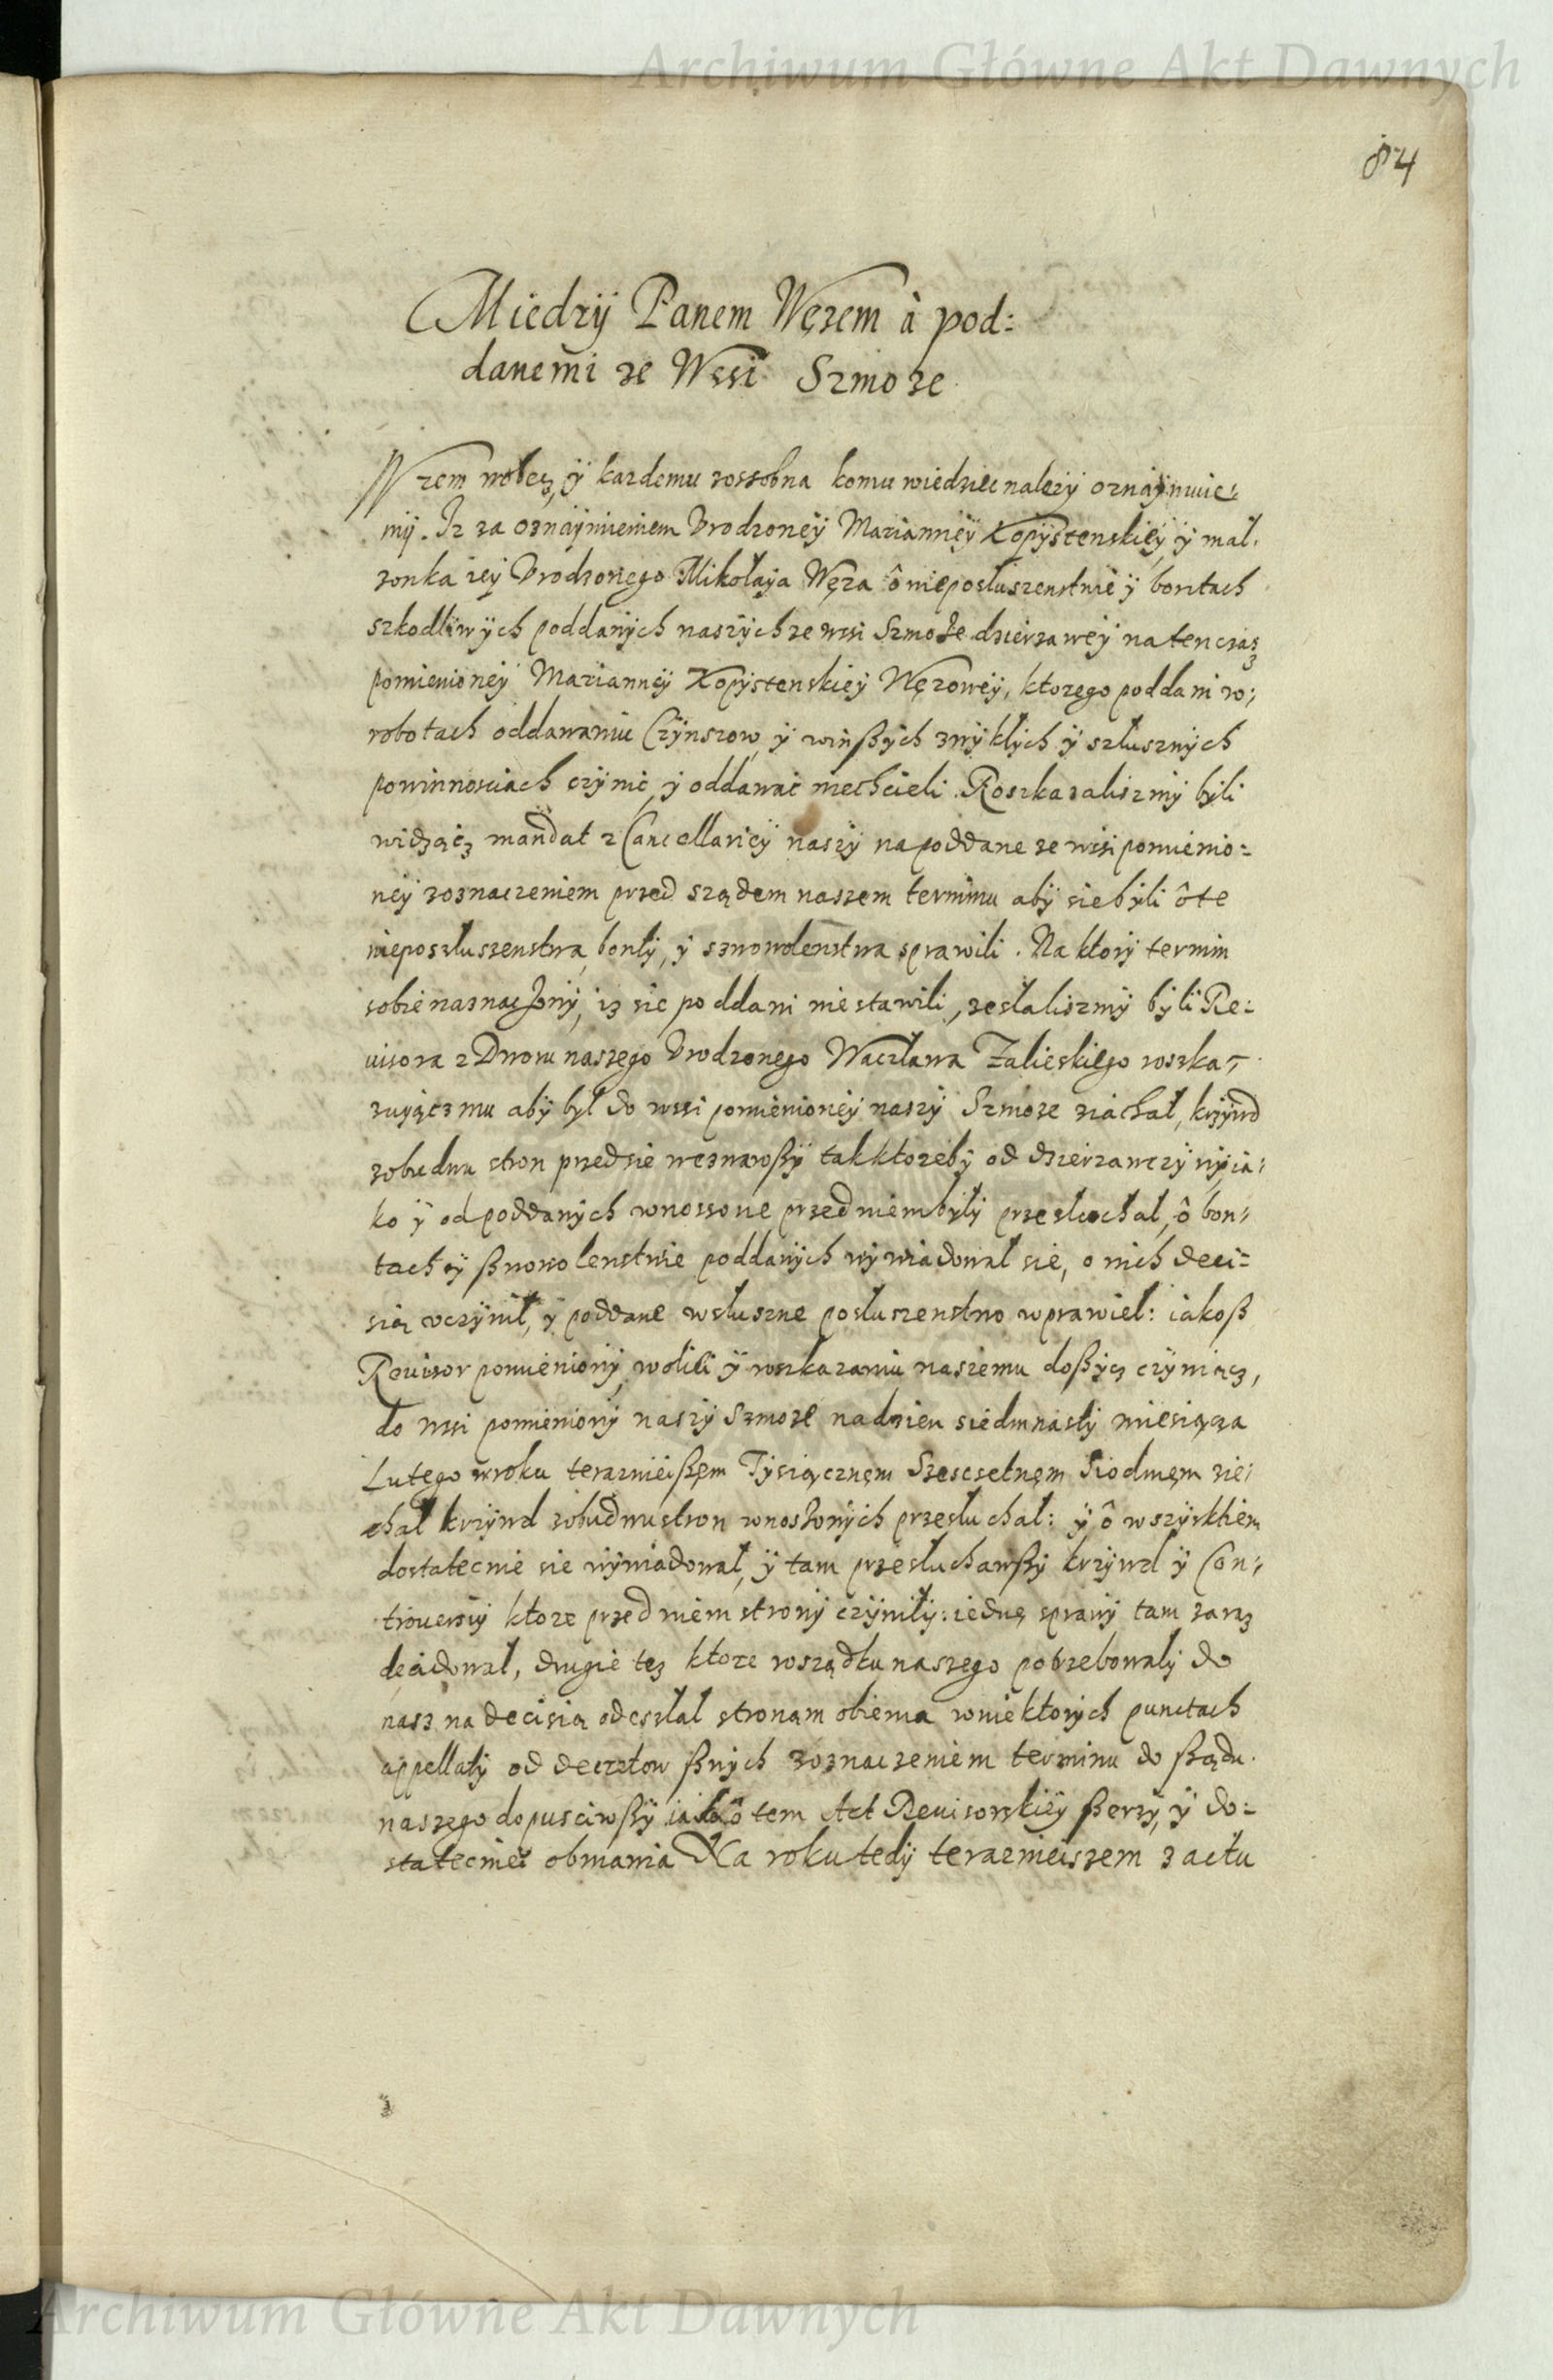 Archiwum Główne Akt Dawnych
84
Miedzÿ Panem Węzem à pod:
danemi ze Wssi Szmoze
Wzem wobecz, ÿ kazdemu zossobna komu wiedziec nalezÿ oznaÿmuie:
mÿ. Iz za oznaÿmieniem Vrodzoneÿ Marianneÿ Kopÿstenskieÿ ÿ mal.
zonka ieÿ Vrodzonego Mikołaÿa Węza ô nieposłuszenstwie ÿ bontach
szkodliwÿch poddanÿch naszÿch ze wsi Szmoze dzierzaweÿ na ten czasz
pomienioneÿ Marianneÿ Kopÿstenskieÿ Węzoweÿ, ktorego poddani ro:
robotach oddawaniu Czÿnszow, ÿ winßÿch zwÿkłÿch ÿ szlusznÿch
powinnosciach czÿnic, ÿ oddawać niechcieli. Roszkazaliszmÿ bÿli
widzącz mandat z Cancellarieÿ naszÿ na poddane ze wsi pomienio:
neÿ zoznaczeniem przed sządem naszem terminu abÿ sie bÿli ô te
nieposzłuszenstwa, bontÿ, ÿ szwowolenstwa sprawili. Na ktorÿ termin
sobie naznaczonÿ, iz sie poddani niestawili, zesłaliszmÿ bÿli Re:
uisora z Dworu naszego Vrodzonego Waczława Zalieskiego roszka:
zuÿącz mu abÿ bÿł do wssi pomienioneÿ naszÿ Szmoze ziachał, krzÿwd
zobudwu stron przedsie wezwawßÿ tak ktorebÿ od dzierzawczÿnÿ ia:
ko ÿ od poddanÿch wnossone przed niem bÿłÿ przesłuchał, ô bon:
tach ÿ ßwowolenstwie poddanÿch wÿwiadował sie, o nich deci:
sią vczÿnił, ÿ poddane w słuszne posłuszenstwo wprawiel: iakoß
Reuisor pomienionÿ, wolili ÿ roszkazaniu naszemu doßÿcz czÿniącz,
do wsi pomienionÿ naszÿ Szmoze na dzien siedmnastÿ miesiąca
Lutego w roku terazniéißęm Tÿsiącznęm Szescsetnęm Siodmęm zie:
chał krzÿwd zobudwu stron wnoszonÿch przesłuchał: ÿ ô wszÿstkiem
dostatecnie sie wÿwiadował, ÿ tam przesłuchawßÿ krzÿwd ÿ Con:
trouersiÿ ktore przed niem stronÿ czÿniłÿ: iedne sprawÿ tam zaraz
decidował, drugie tez ktore rosządku naszego potrzebowałÿ do
nasz na decisią odeszlal stronam obiema w niektorÿch punctach
appellatÿ od decretow ßwÿch zoznaczeniem terminu do ßądu
naszego dopusciwßÿ iako ô tem Act Reuisorskiÿ ßerzÿ, ÿ do:
statecnieÿ obmawia Na roku tedÿ terazniejszem z actu
Archiwum Główne Akt Dawnych